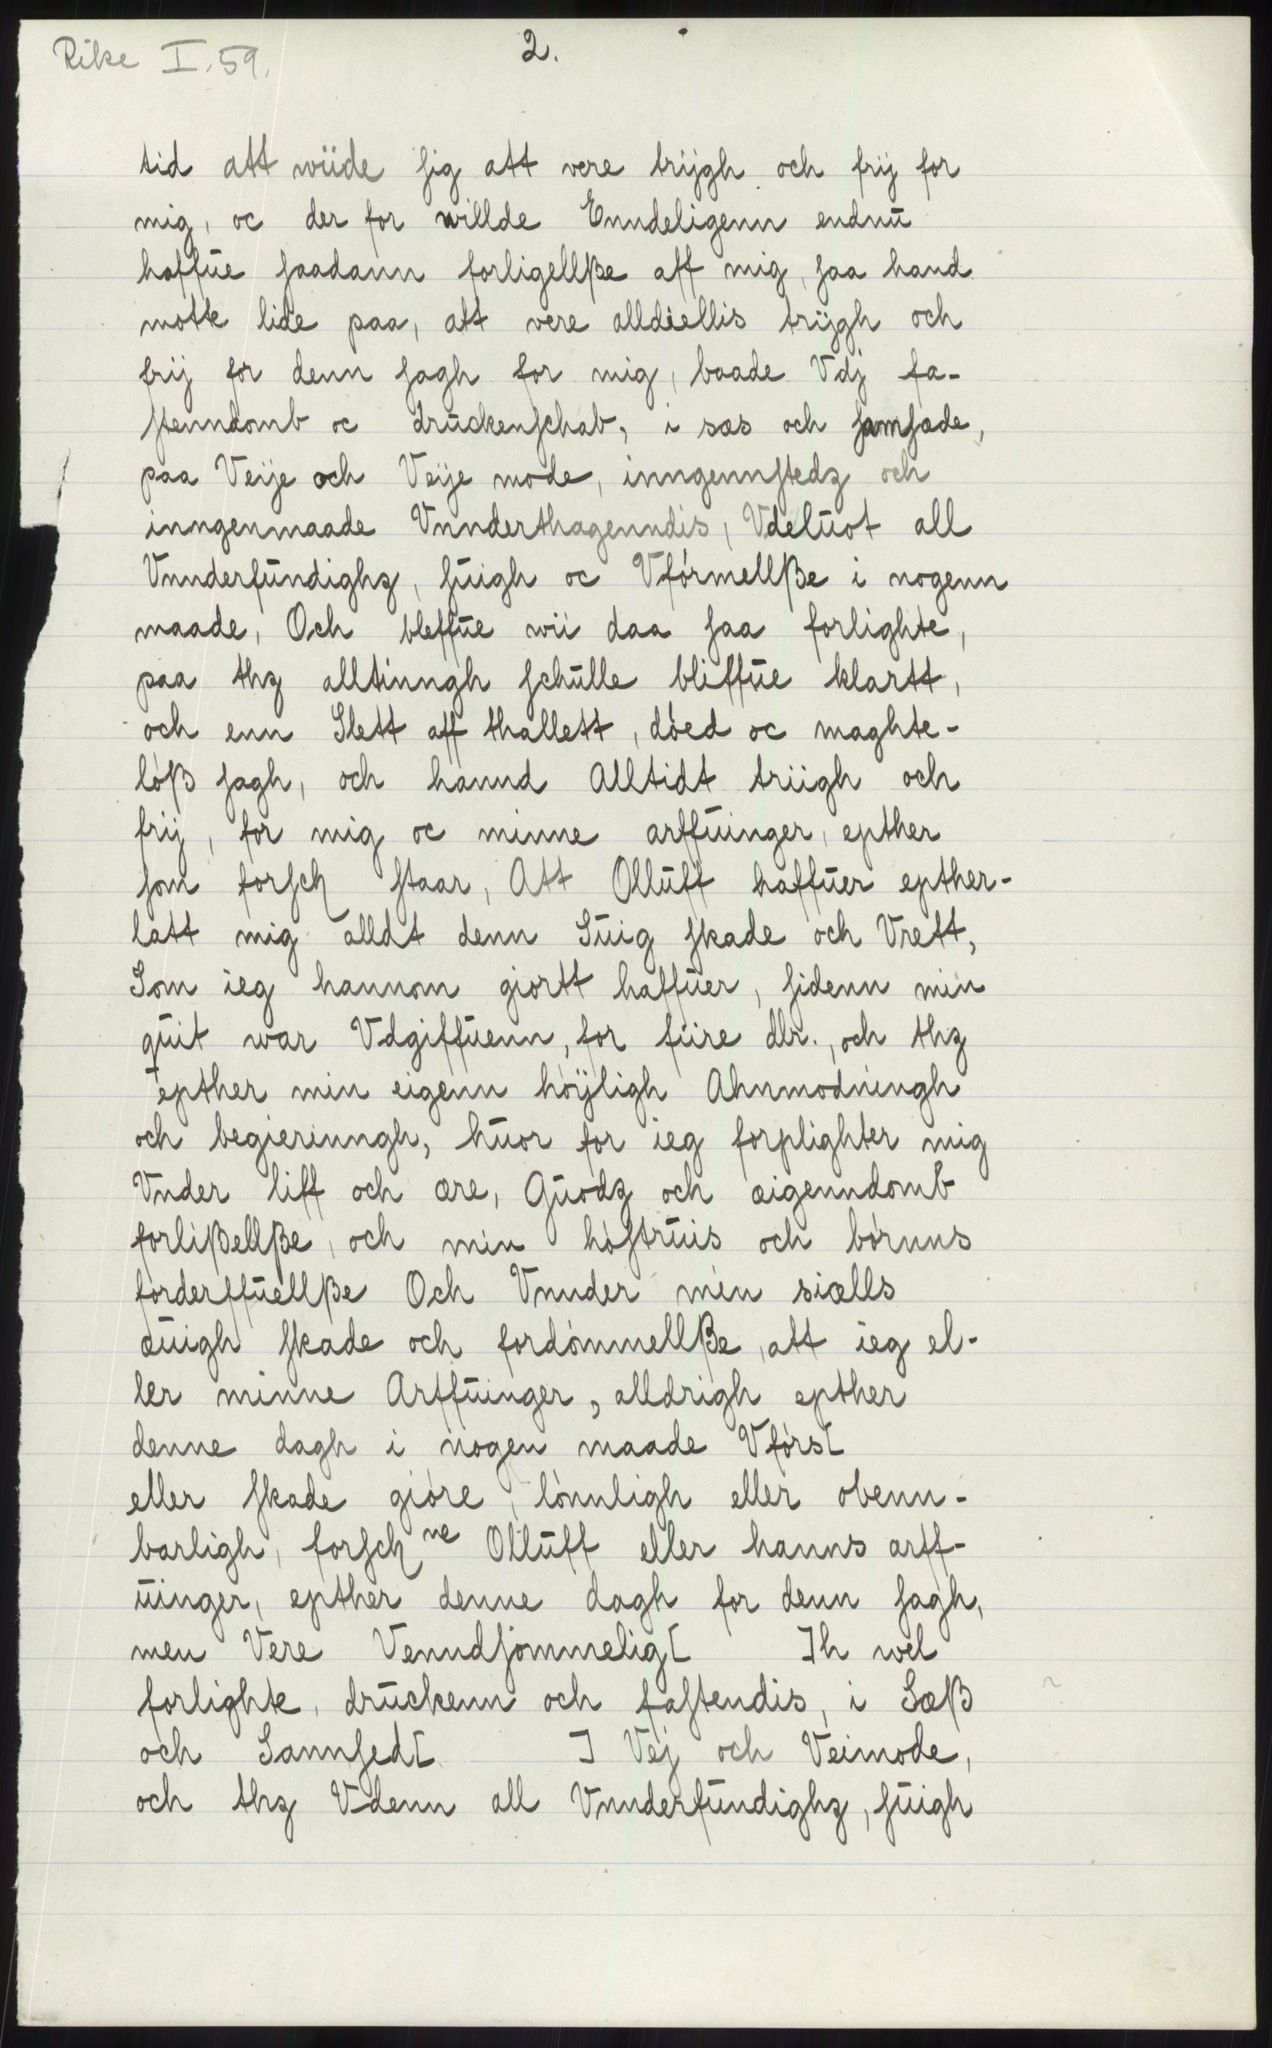 Rike I. 59.
2.
tid att wiide sig att vere trijgh och frij for
mig, oc der for willde Enndeligenn endnu
haffue saadann forligellße aff mig, saa hand
motte lide paa, att vere alldiellis trijgh och
frij for denn sagh for mig, baade Vdj fa-
stenndomb oc druckenschab, i sæs och samsæde,
paa Veije och Veije mode, inngennstedz och
inngenmaade Vnnderthagenndis, Vdeluot all
Vnnderfundighz, suigh oc Vförmellße i nogenn
maade, Och bleffue wii daa saa forlighte,
paa thz alltinngh schulle bliffue klartt,
och enn Slett aff thallett, dóed oc maghte-
lóß sagh, och hannd Alltidt triigh och
frij, for mig oc minne arffuinger, epther
som forsch staar, Att Olluff haffuer epther-
latt mig alldt denn Suig skade och Vrett,
Som ieg hannom giortt haffuer, sidenn min
quit war Vdgiffuenn, for fiire dlr., och thz
epther min eigenn hóijligh Ahnmodningh
och begierinngh, huor for ieg forplighter mig
Vnder liff och ære, Guodz och æigenndomb
forlißellße, och min hóstruis och bórnns
forderffuellße Och Vnnder min siælls
æuigh skade och fordómmellße, att ieg el-
ler minne Arffuinger, alldrigh epther
denne dagh i nogen maade Vfórs[
eller skade gióre, lónnligh eller obenn-
barligh, forsch ne Olluff eller hanns arff-
uinger, epther denne dagh for denn sagh,
men Vere Venndsómmelig[ ]h wel
forlighte, druckenn och fastendis, i Sæß
och Sannsed[ ] Vej och Veimode,
och thz Vdenn all Vnnderfundighz, suigh